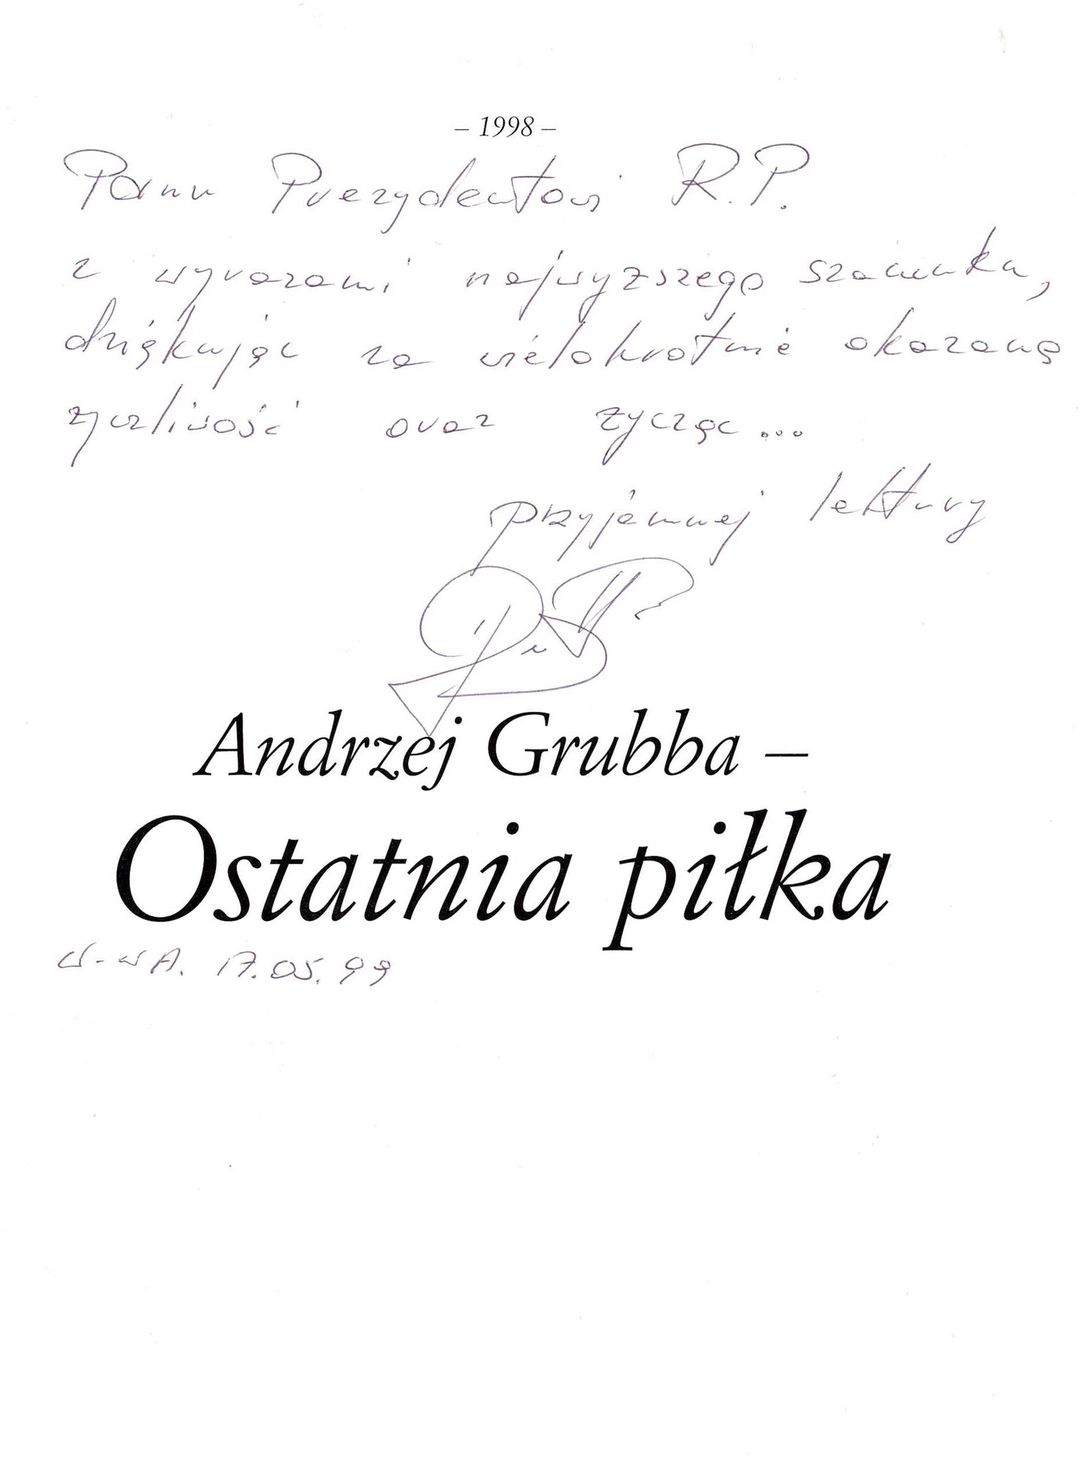 – 1998 –
Panu Prezydentowi R.P.
z wyrazami najwyższego szacunku,
dziękując za wielokrotnie okazaną
życzliwość oraz życząc...
przyjemnej lektury
Andrzej Grubba –
Ostatnia piłka
W-WA. 17.05.99